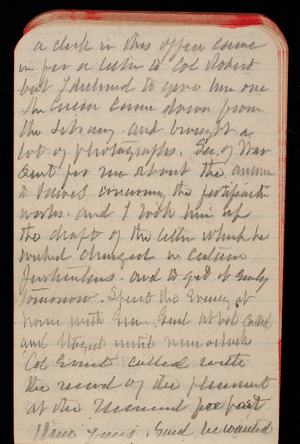 a clerk in this office came
in for a letter to Col Robert
but I declined to give him one
Mr Green came down from
the library and brought a
lot of photographs. Sec of War
sent for me about the answer
to Dawes concerning the fortification
works. and I took him up
the draft of the letter which he
wished changed in certain
particulars. and to get it early
tomorrow. Spent the Evening at
home with Em. Genl called
and stayed until nine o'clock
Col Ernst called with
the record of the placement
at the Monument for past
three years. Said he wanted